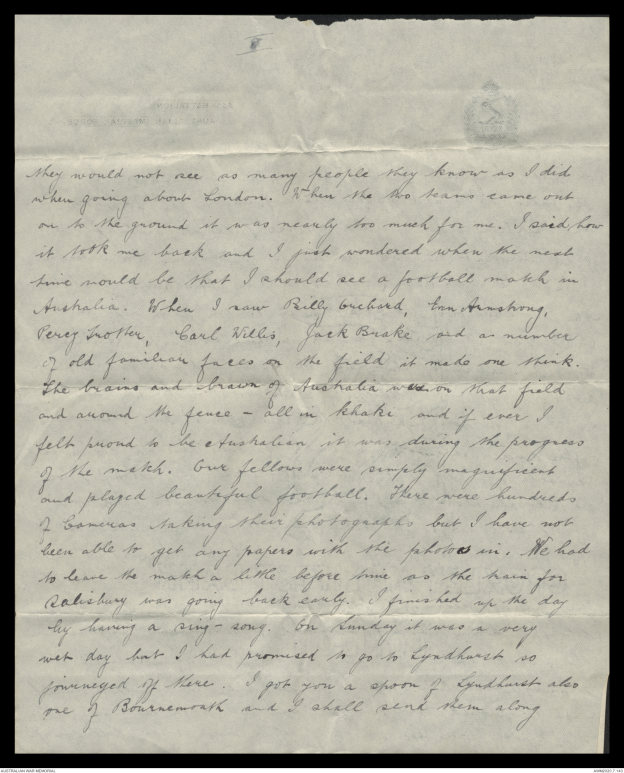 they would not see as many people they know as I did
when going about London. When the two teams came out
on to the ground it was nearly too much for me. I said how
it took me back and I just wondered when the next
time would be that I should see a football match in
Australia. When I saw Billy Orchard, Armstrong,
Percy Trotter, Carl Willis, Jack Brake and a number
of old familiar faces on the field it made one think.
The brains and brawn of Australia was on that field
and around the fence - all in khaki and if ever I
felt proud to be Australian it was during the progress
of the match. Our fellows were simply magnificent
and played beautiful football. There were hundreds
of Cameras taking their photographs but I have not
been able to get any papers with the photos in. We had
to leave the match a little before time as the train for
Salisbury was going back early. I finished up the day
by having a sing-song. On Sunday it was a very
wet day but I had promised to go to Lyndhurst so
journeyed off there. I got you a spoon of Lyndhurst also
one of Bournemouth and I shall send them along
AUSTRALIAN WAR MEMORIAL